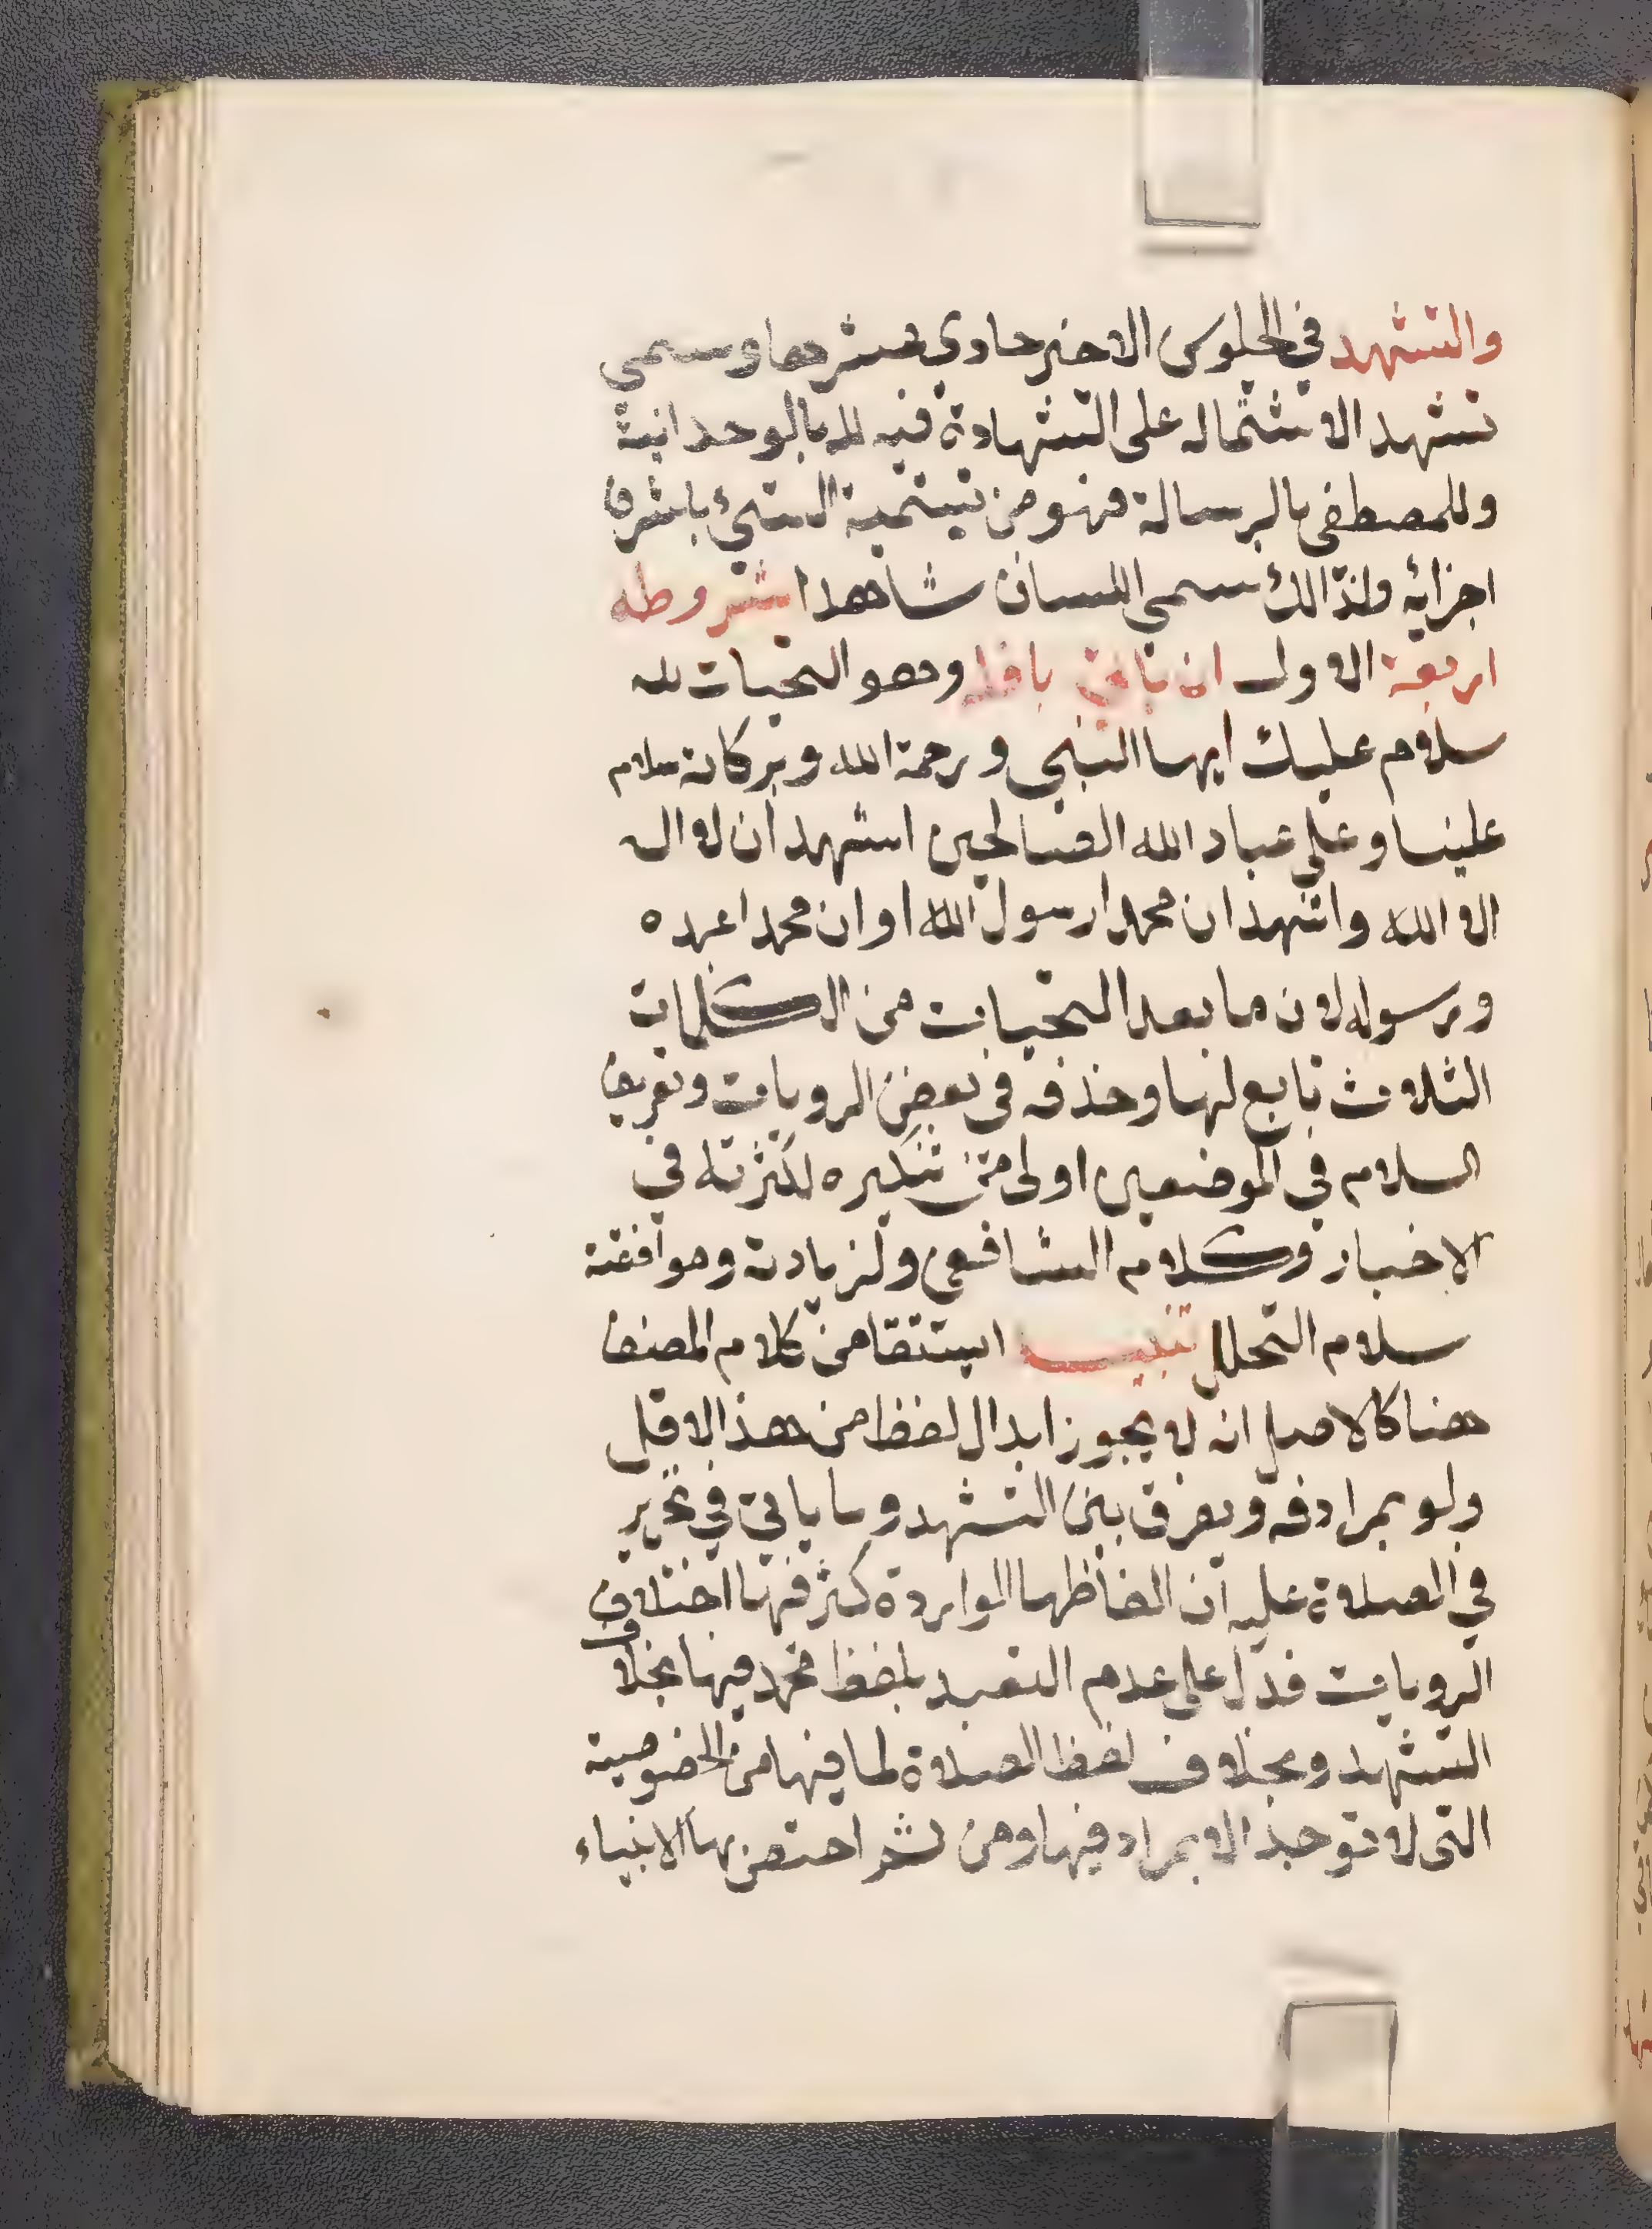 والتشهد في الجلوس الاخير حادي عشرها وسمي
تشهدا لاشتماله على الشهادة فيه لله بالوحدانية
وللمصطفى بالرسالة فهو من تسمية الشيء باشرف
اجزائه ولذالك سمي اللسان شاهدا شروطه
اربعة الاول ان ياتي باقله وهو التحيات لله
سلام عليك ايها النبي ورحمة الله وبركاته سلام
علينا وعلى عباد الله الصالحين اشهد ان لا اله
الا الله واشهد ان محمدا رسول الله او ان محمدا عبده
ورسوله لان ما بعد التحيات من الكلمات
الثلاث تابع لها وحذفه في بعض الرويات وتعريف
السلام في الموضعين اولى من تنكيره لكثرته في
الاخبار وكلام الشافعي ولزيادته وموافقته
سلام التحلل تنبيه استفتقا من كلام المصنف
هنا كالاصل انه لا يجوز ابدال لفظ من هذ الاقل
ولو بمرادفه ويفرق بين التشهد وما ياتي في تحرير
في الصلاة عليه ان الفاظها الواردة كثر فيها اختلاف
الرويات فدل على عدم التعبد بلفظ محمد فيها بخلاف
التشهد وبخلاف لفظ الصلاة لما فيها من الخصوصية
التي لا توجد الا بمراد فيها ومن ثم اختص بها الانبياء